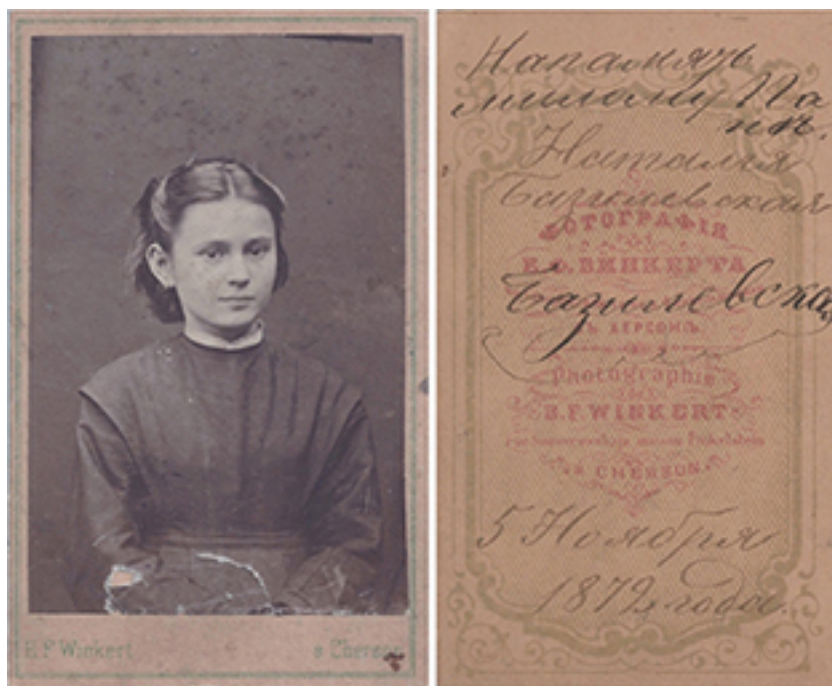 B. F. Winkert à Cherson
На память
милому Па
пѣ.
Наталия
Базилевская
ФОТОГРАФІЯ
Б.Ф. ВИНКЕРТА
Базилевская
ВЪ ХЕРСОНѢ.
Photographie
B. F. WINKERT
à CHERSON.
5 Ноября
1872 года.